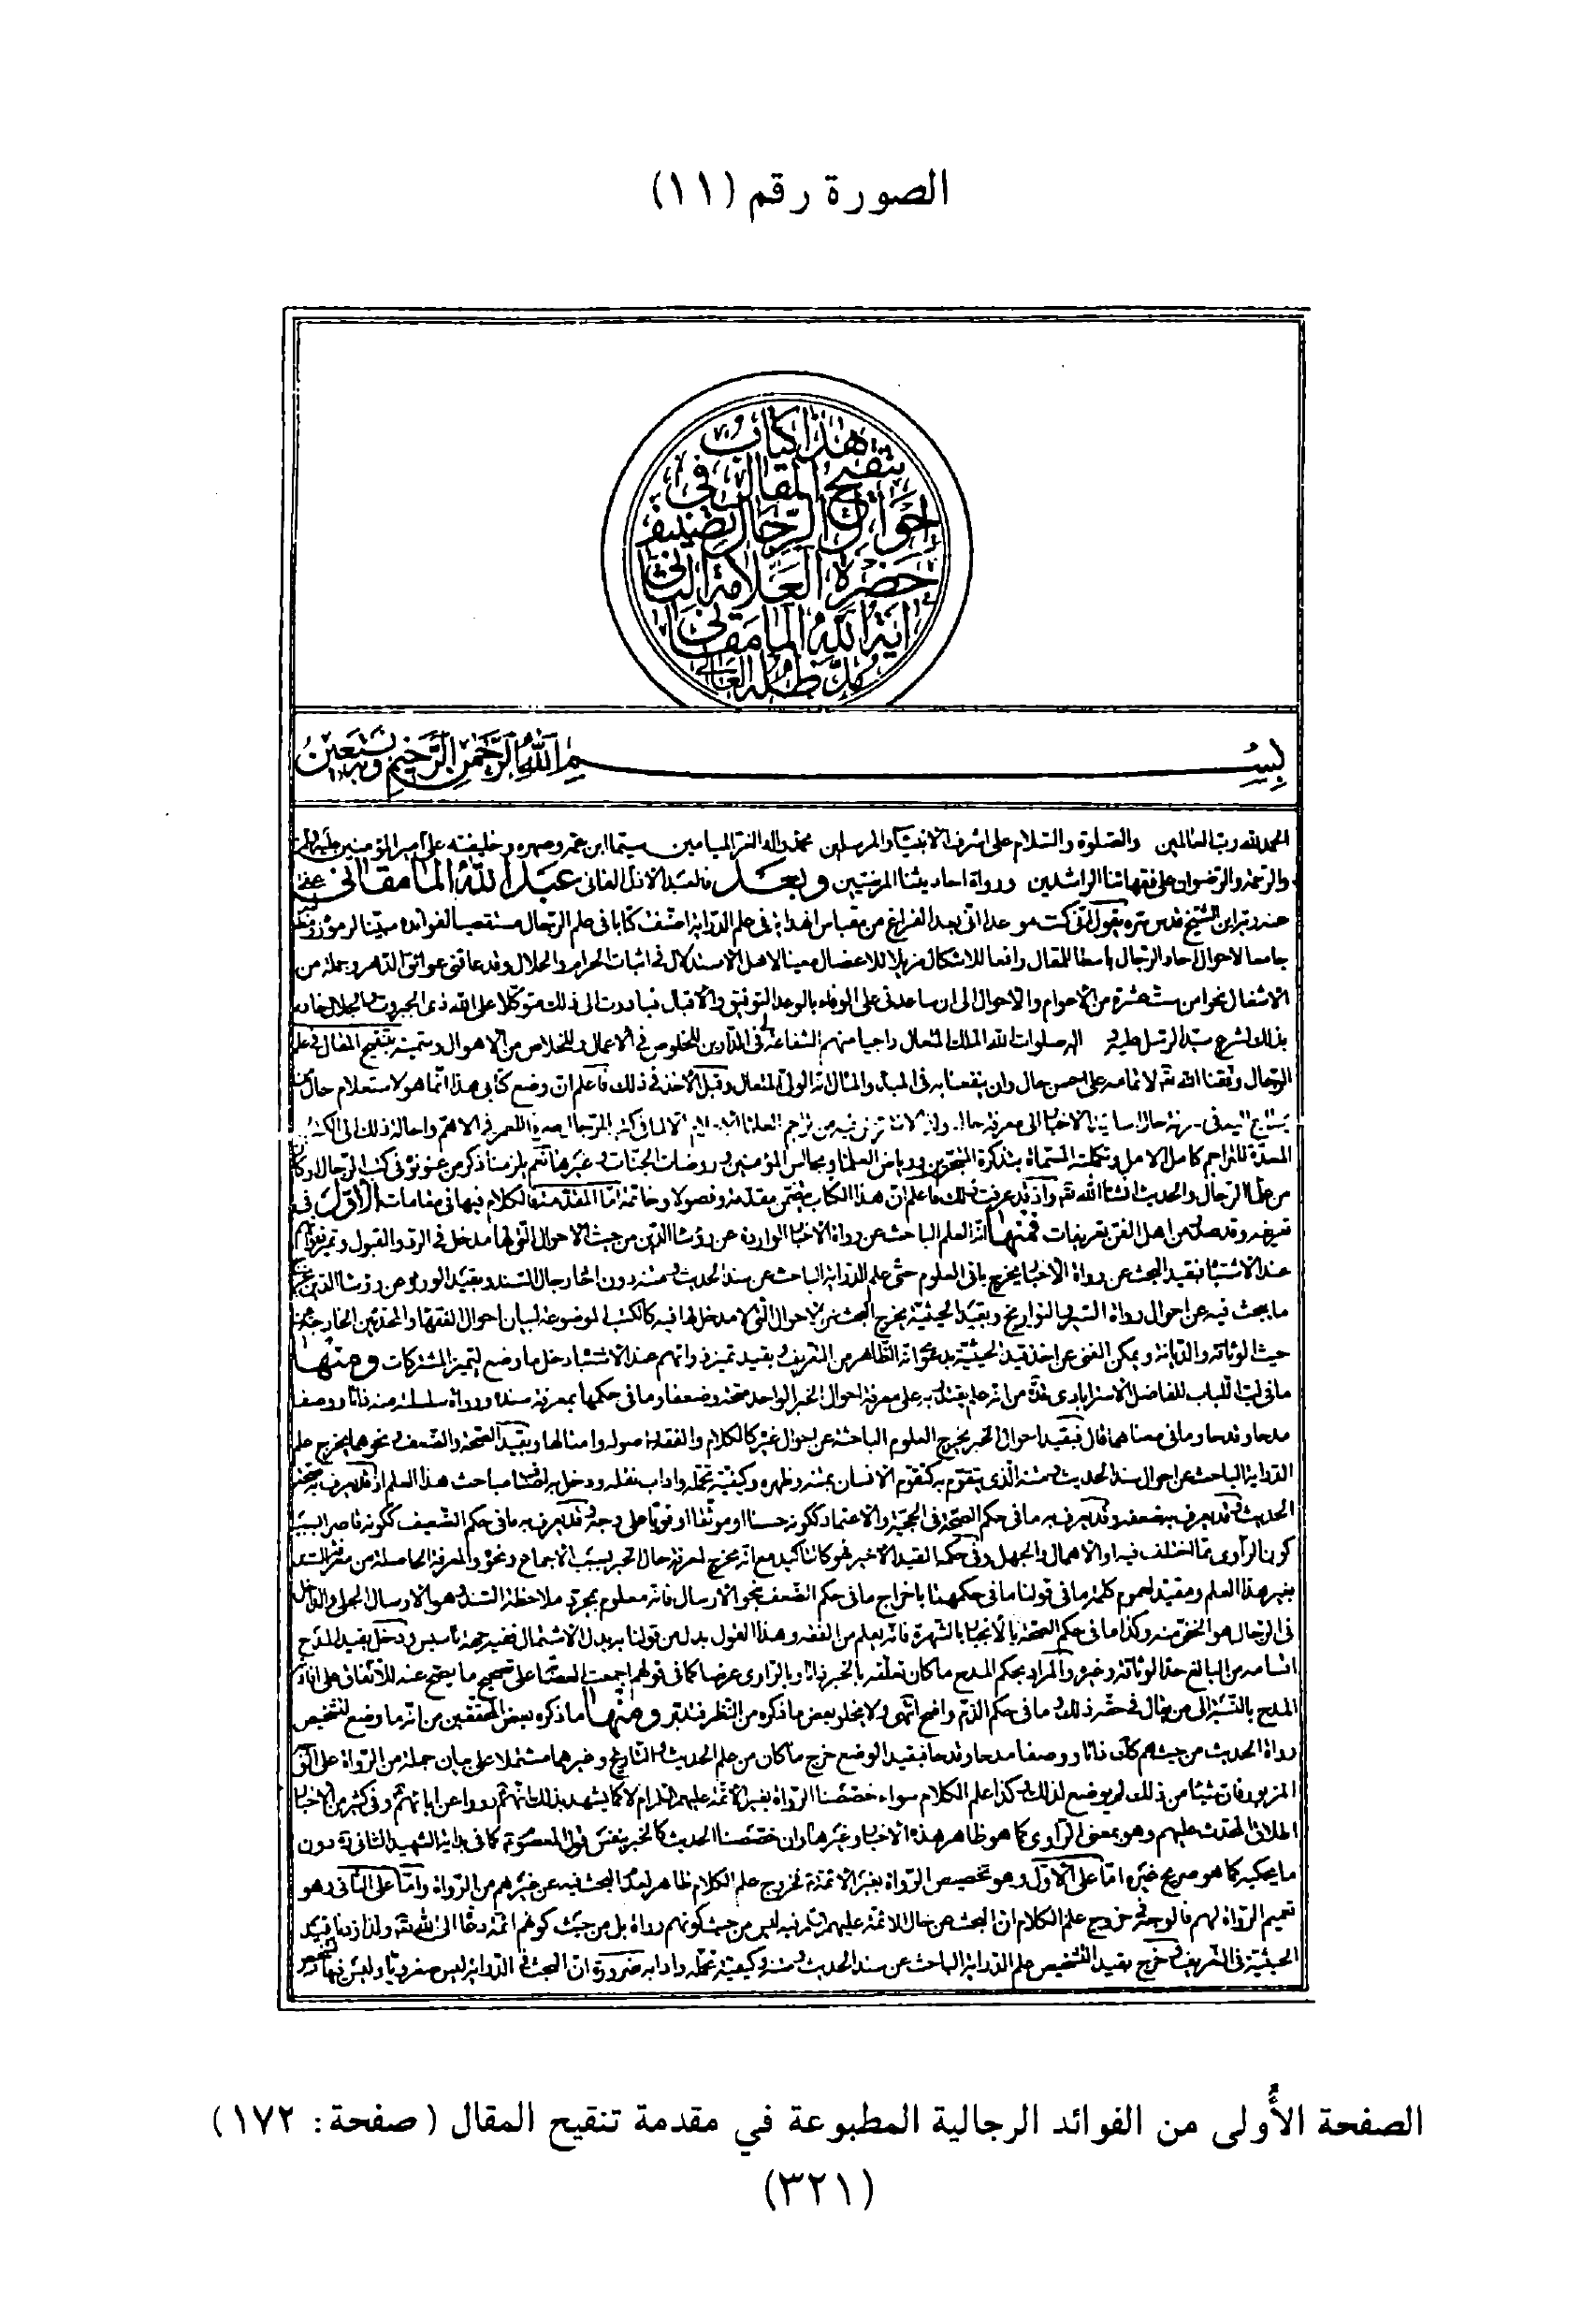 الصورة رقم (١١)
هذا كتاب
تنقيح المقال في
احوال الرجال تصنيف
حضرة العلامة الثاني
اية الله المامقاني
مد ظله العالي
بسم الله الرحمن الرحيم وبه نستعين
الحمد لله رب العالمين والصلوة والسلام على اشرف الانبياء والمرسلين محمد واله الغر الميامين سيما ابن عمه وصهره وخليفته على امير المؤمنين
والرحمة والرضوان على فقهائنا الراشدين ورواة احاديثنا المرضيين وبعد فالعبد الاذل الفاني عبد الله المامقاني عفى
عنه ربه ابن الشيخ قدس سره يقول انى كنت موعدا انى بعد الفراغ من مقباس الهداية في علم الدراية اصنف كتابا في علم الرجال مستقصيا لفوائده مبينا لرموزه
جامعا لاحوال احاد الرجال باسطا للمقال رافعا للاشكال مزيلا للاعضال معينا لاهل الاستدلال في اثبات الحرام والحلال وقد عاقنى عوائق الدهر وجملة من
الاشغال نحوا من ستة عشرة من الاعوام والاحوال الى ان ساعدنى على الوفاء بالوعد التوفيق والاقبال فبادرت الى ذلك متوكلا على الله ذى الجبروت والجلال خادما
بذلك لشرع سيد الرسل عليه واله صلوات الله الملك المتعال راجيا منهم الشفاعة في الدارين للخلوص في الاعمال والخلاص من الاهوال وسميته بتنقيح المقال في علم
الرجال وفقنا الله تعالى لاتمامه على احسن حال وان ينفعنا به في المبدء والمئال انه الولى المتعال وقبل الاخذ في ذلك فاعلم ان وضع كتابى هذا انما هو لاستعلام حال من
المعدة للتراجم كامل الامل وتكملته المسماة بتذكرة المتبحرين ورياض العلماء ومجالس المؤمنين وروضات الجنات وغيرها نعم يلزمنا ذكر من عنونوه في كتب الرجال او كان
من علماء الرجال والحديث انشاء الله تعالى واذ قد عرفت ذلك فاعلم ان هذا الكتاب يتضمن مقدمة وفصولا وخاتمة اما المقدمة فالكلام فيها في مقامات الاول في
تعريفه وقد صدر من اهل الفن تعريفات فمنها انه العلم الباحث عن رواة الاخبار الواردة عن رؤساء الدين من حيث الاحوال التى لها مدخل في الرد والقبول وتميز ذواتهم
عند الاشتباه فبقيد البحث عن رواة الاخبار يخرج باقى العلوم حتى علم الدراية الباحث عن سند الحديث ومتنه دون احاد رجال السند وبقيد الورود عن رؤساء الدين يخرج
ما يبحث فيه عن احوال رواة السير والتواريخ وبقيد الحيثية يخرج البحث عن الاحوال التى لا مدخل لها فيه كالكتب الموضوعة لبيان احوال الفقهاء والمحدثين الخارجة عن
حيث الوثاقة والديانة ويمكن الغنى عن اخذ قيد الحيثية بدعوى انه الظاهر من التعريف وبقيد تميز ذواتهم عند الاشتباه دخل ما وضع لتميز المشتركات ومنها
ما في لب اللباب للفاضل الاسترابادى قده من انه علم يقتدر به على معرفة احوال الخبر الواحد صحة وضعفا وما في حكمها بمعرفة سنده ورواة سلسلة متنه ذاتا ووصفا
مدحا وقدحا وما في معناهما قال فبقيد احوال الخبر يخرج العلوم الباحثة عن احوال غيره كالكلام والفقه واصوله وامثالها وبقيد الصحة والضعف ونحوهما يخرج علم
الدراية الباحث عن احوال سند الحديث ومتنه الذى يتقوم به كتقوم الانسان بمتنه وظهره وكيفية تحمله واداب نقله ودخل به ايضا مباحث هذا العلم اذ قد يعرف به صحة
الحديث وقد يعرف به ضعفه وقد يعرف به ما في حكم الصحة في الحجية والاعتماد ككونه حسنا او موثقا او قويا على وجه وقد يعرف به ما في حكم الضعيف ككونه قاصرا بسبب
كون الراوى مما اختلف فيه او الاهمال والجهل وفي حكمه القيد الاخير فهو كالتاكيد مع انه مخرج لمعرفة حال الخبر بسبب الاجماع ونحوه والمعرفة الحاصلة من
بغير هذا العلم ومفيد لعموم كلمة ما في قولنا ما في حكمهما باخراج ما في حكم الضعف بنحو الارسال فانه معلوم بمجرد ملاحظة السند وهو الارسال الجلى والداخل
في الرجال هو الخفى منه وكذا ما في حكم الصحة بالانجبار بالشهرة فانه يعلم من الفقه وهذا القول بدل من قولنا به بدل الاشتمال ففيه جهة تاسيس ودخل بقيد المدح
اقسامه من البالغ حد الوثاقة وغيره والمراد بحكم المدح ما كان تعلقه بالخبر ذاتا وبالراوى عرضا كما في قولهم اجمعت العصابة على تصحيح ما يصح عنه للاتفاق على افادته
المدح بالنسبة الى من يقال في حقه ذلك وما في حكم الذم واضح انتهى ولا يخلو بعض ما ذكره من النظر فتدبر ومنها ما ذكره بعض المحققين من انه ما وضع لتشخيص
رواة الحديث من حيث هم كك ذاتا ووصفا مدحا وقدحا فبقيد الوضع خرج ما كان من علم الحديث والتاريخ وغيرهما مشتملا على بيان جملة من الرواة على الوجه
المزبور فان شيئا من ذلك لم يوضع لذلك وكذا علم الكلام سواء خصصنا الرواة بغير الائمة عليهم السلام كما يشهد بذلك انهم رووا عن ابائهم وفي كثير من الاخبار
اطلاق المحدث عليهم وهو بمعنى الراوى كما هو ظاهر هذه الاخبار وغيرها وان خصصنا الحديث كالخبر بنفس قول المعصوم كما في بداية الشهيد الثانى ره دون
ما يحكيه كما هو صريح غيره اما على الاول وهو تخصيص الرواة بغير الائمة ع فخروج علم الكلام ظاهر لعدم البحث فيه عن غيرهم من الرواة واما على الثانى وهو
تعميم الرواة لهم فالوجه في خروج علم الكلام ان البحث عن حال الائمة عليهم السلام فيه ليس من حيث كونهم رواة بل من حيث كونهم ائمة دعاة الى الله تعالى ولذا زدنا قيد
الحيثية في التعريف وخرج بقيد التشخيص علم الدراية الباحث عن سند الحديث ومتنه وكيفية تحمله وادابه ضرورة ان البحث في الدراية ليس صغرويا وليس فيها تشخيص
الصفحة الأُولى من الفوائد الرجالية المطبوعة في مقدمة تنقيح المقال (صفحة: ١٧٢)
(٣٢١)